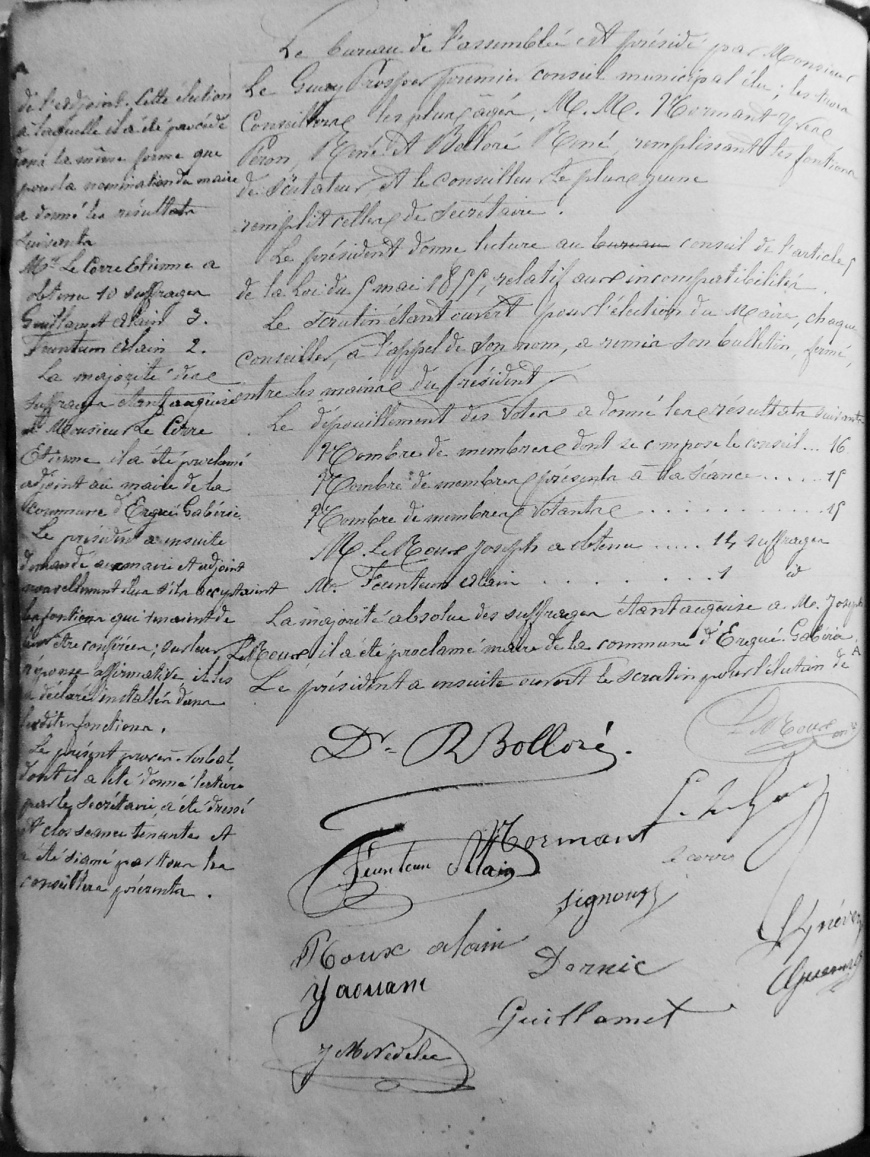 Le bureau de l'assemblée est présidé par Monsieur
Le Guay Prosper premier conseil municipal élu; les trois
Conseillers les plus âgés, M. M. Normant Yves
Péron, René et Bolloré René, remplissant les fonctions
de scrutateur et le conseiller le plus jeune
remplit celles de secrétaire.
Le président donne lecture au bureau conseil de l'article 5
de la Loi du 5 mai 1855, relatif aux incompatibilités.
Le scrutin étant ouvert pour l'élection du Maire, chaque
conseiller, à l'appel de son nom, a remis son bulletin, fermé,
entre les mains du président
Le dépouillement des votes a donné les résultats suivants
Nombre de membres dont se compose le conseil... 16
Nombre de membres présents à la séance...... 15
Nombre de membres votants .......... 15
M. Le Roux Joseph a obtenu ..... 14 suffrages
M. Feunteun Alain .......... 1 id
La majorité absolue des suffrages étant acquise à M. Joseph
Le Roux il a été proclamé maire de la commune d'Ergué Gabéric.
Le président a ensuite ouvert le scrutin pour l'élection de
de l'adjoint. Cette élection
à laquelle il a été procédé
dans la même forme que
pour la nomination du maire
a donné les résultats
suivants
Mr. Le Corre Etienne a
obtenu 10 suffrages
Guillamet Alain 3.
Feunteun Alain 2.
La majorité des
suffrages étant acquise
à Monsieur Le Corre
Etienne il a été proclamé
adjoint au maire de la
commune d'Ergué-Gabéric.
Le président a ensuite
demandé au maire et adjoint
nouvellement élus s'ils acceptaient
les fonctions qui venaient de
leur être conférées; sur leur
réponse affirmative il les
a déclaré installés dans
lesdites fonctions.
Le présent procès-verbal
dont il a été donné lecture
par le secrétaire, a été dressé
et clos séance tenante et
a été signé par tous les
conseillers présents.
Le Roux
Dr R Bolloré.
Normant
Feunteun Alain
Le corre
Signour
Roux alain
Dornic
Yaouanc
Guillamet
Y M Nédélec